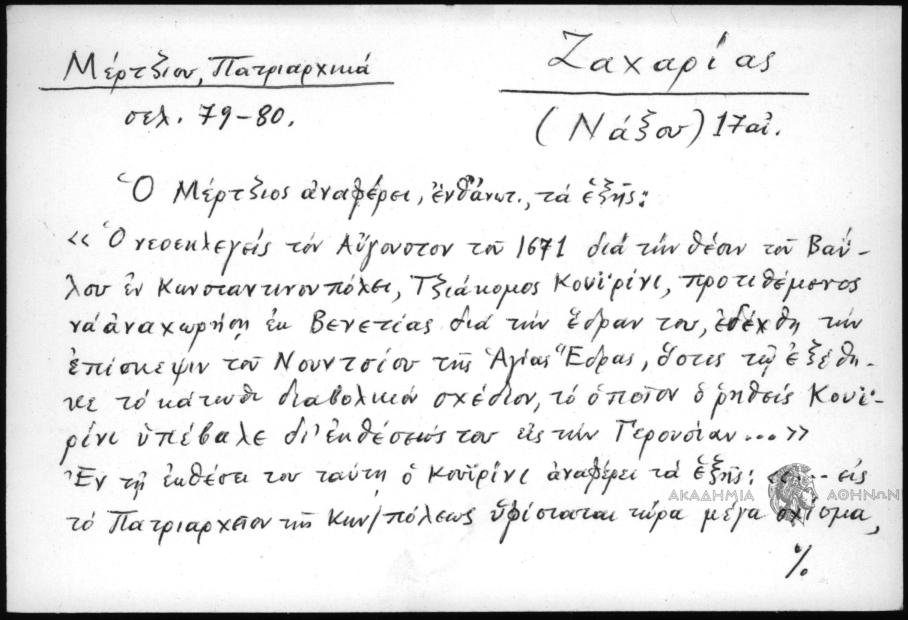 Μέρτζιου, Πατριαρχικά
σελ. 79-80.
Ζαχαρίας
(Νάξου) 17 αἰ.
Ὁ Μέρτζιος ἀναφέρει, ἐνθ' ἀνωτ., τά ἑξῆς:
«Ὁ νεοεκλεγείς τόν Αὔγουστον τοῦ 1671 διά τήν θέσιν τοῦ Βαΐ-
λου ἐν Κωνσταντινουπόλει, Τζιάκομος Κουϊρίνι, προτιθέμενος
νά ἀναχωρήσῃ ἐκ Βενετίας διά τήν ἕδραν του, ἐδέχθη τήν
ἐπίσκεψιν τοῦ Νουντσίου τῆς Ἁγίας Ἕδρας, ὅστις τῷ ἐξέθη-
κε τό κάτωθι διαβολικόν σχέδιον, τό ὁποῖον ὁ ρηθείς Κουϊ-
ρίνι ὑπέβαλε δι' ἐκθέσεώς του εἰς τήν Γερουσίαν...»
Ἐν τῇ ἐκθέσει του ταύτῃ ὁ Κουϊρίνι ἀναφέρει τά ἑξῆς: «... εἰς
τό Πατριαρχεῖον τῆς Κων/πόλεως ὑφίσταται τώρα μέγα σχίσμα,
%
ΑΚΑΔΗΜΙΑ ΑΘΗΝΩΝ